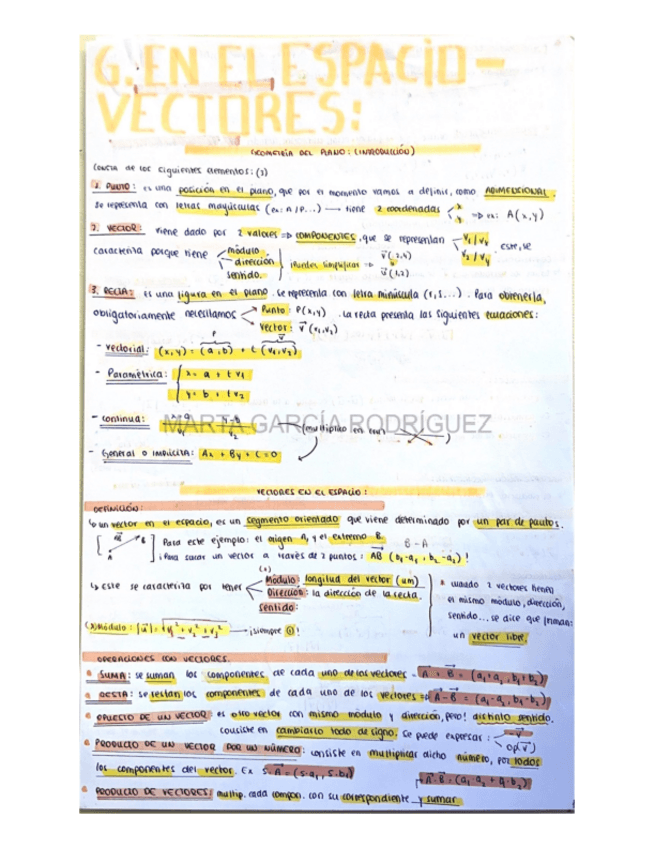 G. EN EL ESPACIO -
VECTORES:
GEOMETRÍA DEL PLANO: (INTRODUCCIÓN)
Consta de los siguientes elementos: (3)
1. PUNTO: es una posición en el plano, que por el momento vamos a definir, como ADIMENSIONAL.
Se representa con letras mayúsculas (ex: A / P...) → tiene 2 coordenadas x y => ex: A(x,y)
2. VECTOR: viene dado por 2 valores => COMPONENTES, que se representan V1 / Vx V2 / Vy este, se
caracteriza porque tiene módulo dirección sentido.
3. RECTA: es una figura en el plano. Se representa con letra minúscula (r, s...). Para obtenerla,
obligatoriamente necesitamos Punto: P(x,y) Vector: v (v1,v2) . La recta presenta las siguientes ecuaciones:
- Vectorial: (x,y) = (a,b) + t (v1,v2)
- Paramétrica: x = a + t v1
y = b + t v2
- Continua:
MARTA GARCÍA RODRÍGUEZ
- General o implícita: Ax + By + C = 0
VECTORES EN EL ESPACIO:
DEFINICIÓN:
un vector en el espacio, es un segmento orientado que viene determinado por un par de puntos.
Para este ejemplo: el origen A, y el extremo B. B - A
¡Para sacar un vector a través de 2 puntos: AB (b1-a1, b2-a2)!
este se caracteriza por tener Módulo: longitud del vector (um)
Dirección: la dirección de la recta.
sentido:
* cuando 2 vectores tienen
el mismo módulo, dirección,
sentido... se dice que forman:
un vector libre.
Módulo: |u| = √v1² + v2² + v3² → ¡siempre
OPERACIONES CON VECTORES.
SUMA: se suman los componentes de cada uno de los vectores = A + B = (a1+a2, b1+b2)
RESTA: se restan los componentes de cada uno de los vectores => A - B = (a1-a2, b1-b2)
OPUESTO DE UN VECTOR: es otro vector con mismo módulo y dirección, pero! distinto sentido.
consiste en cambiarlo todo de signo. Se puede expresar: -v op(v)
PRODUCTO DE UN VECTOR POR UN NÚMERO: consiste en multiplicar dicho número, por todos
los componentes del vector. Ex 5·A = (5·a1, 5·b1)
PRODUCTO DE VECTORES: multip. cada compon. con su correspondiente y sumar